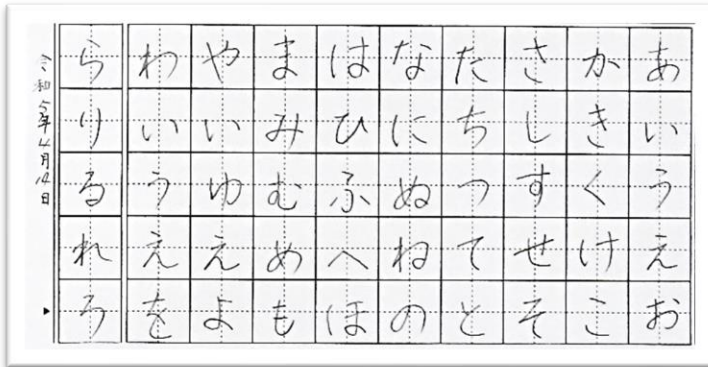 あいうえお
かきくけこ
さしすせそ
たちつてと
なにぬねの
はひふへほ
まみむめも
やいゆえよ
わいうえを
らりるれろ
令和年4月14日